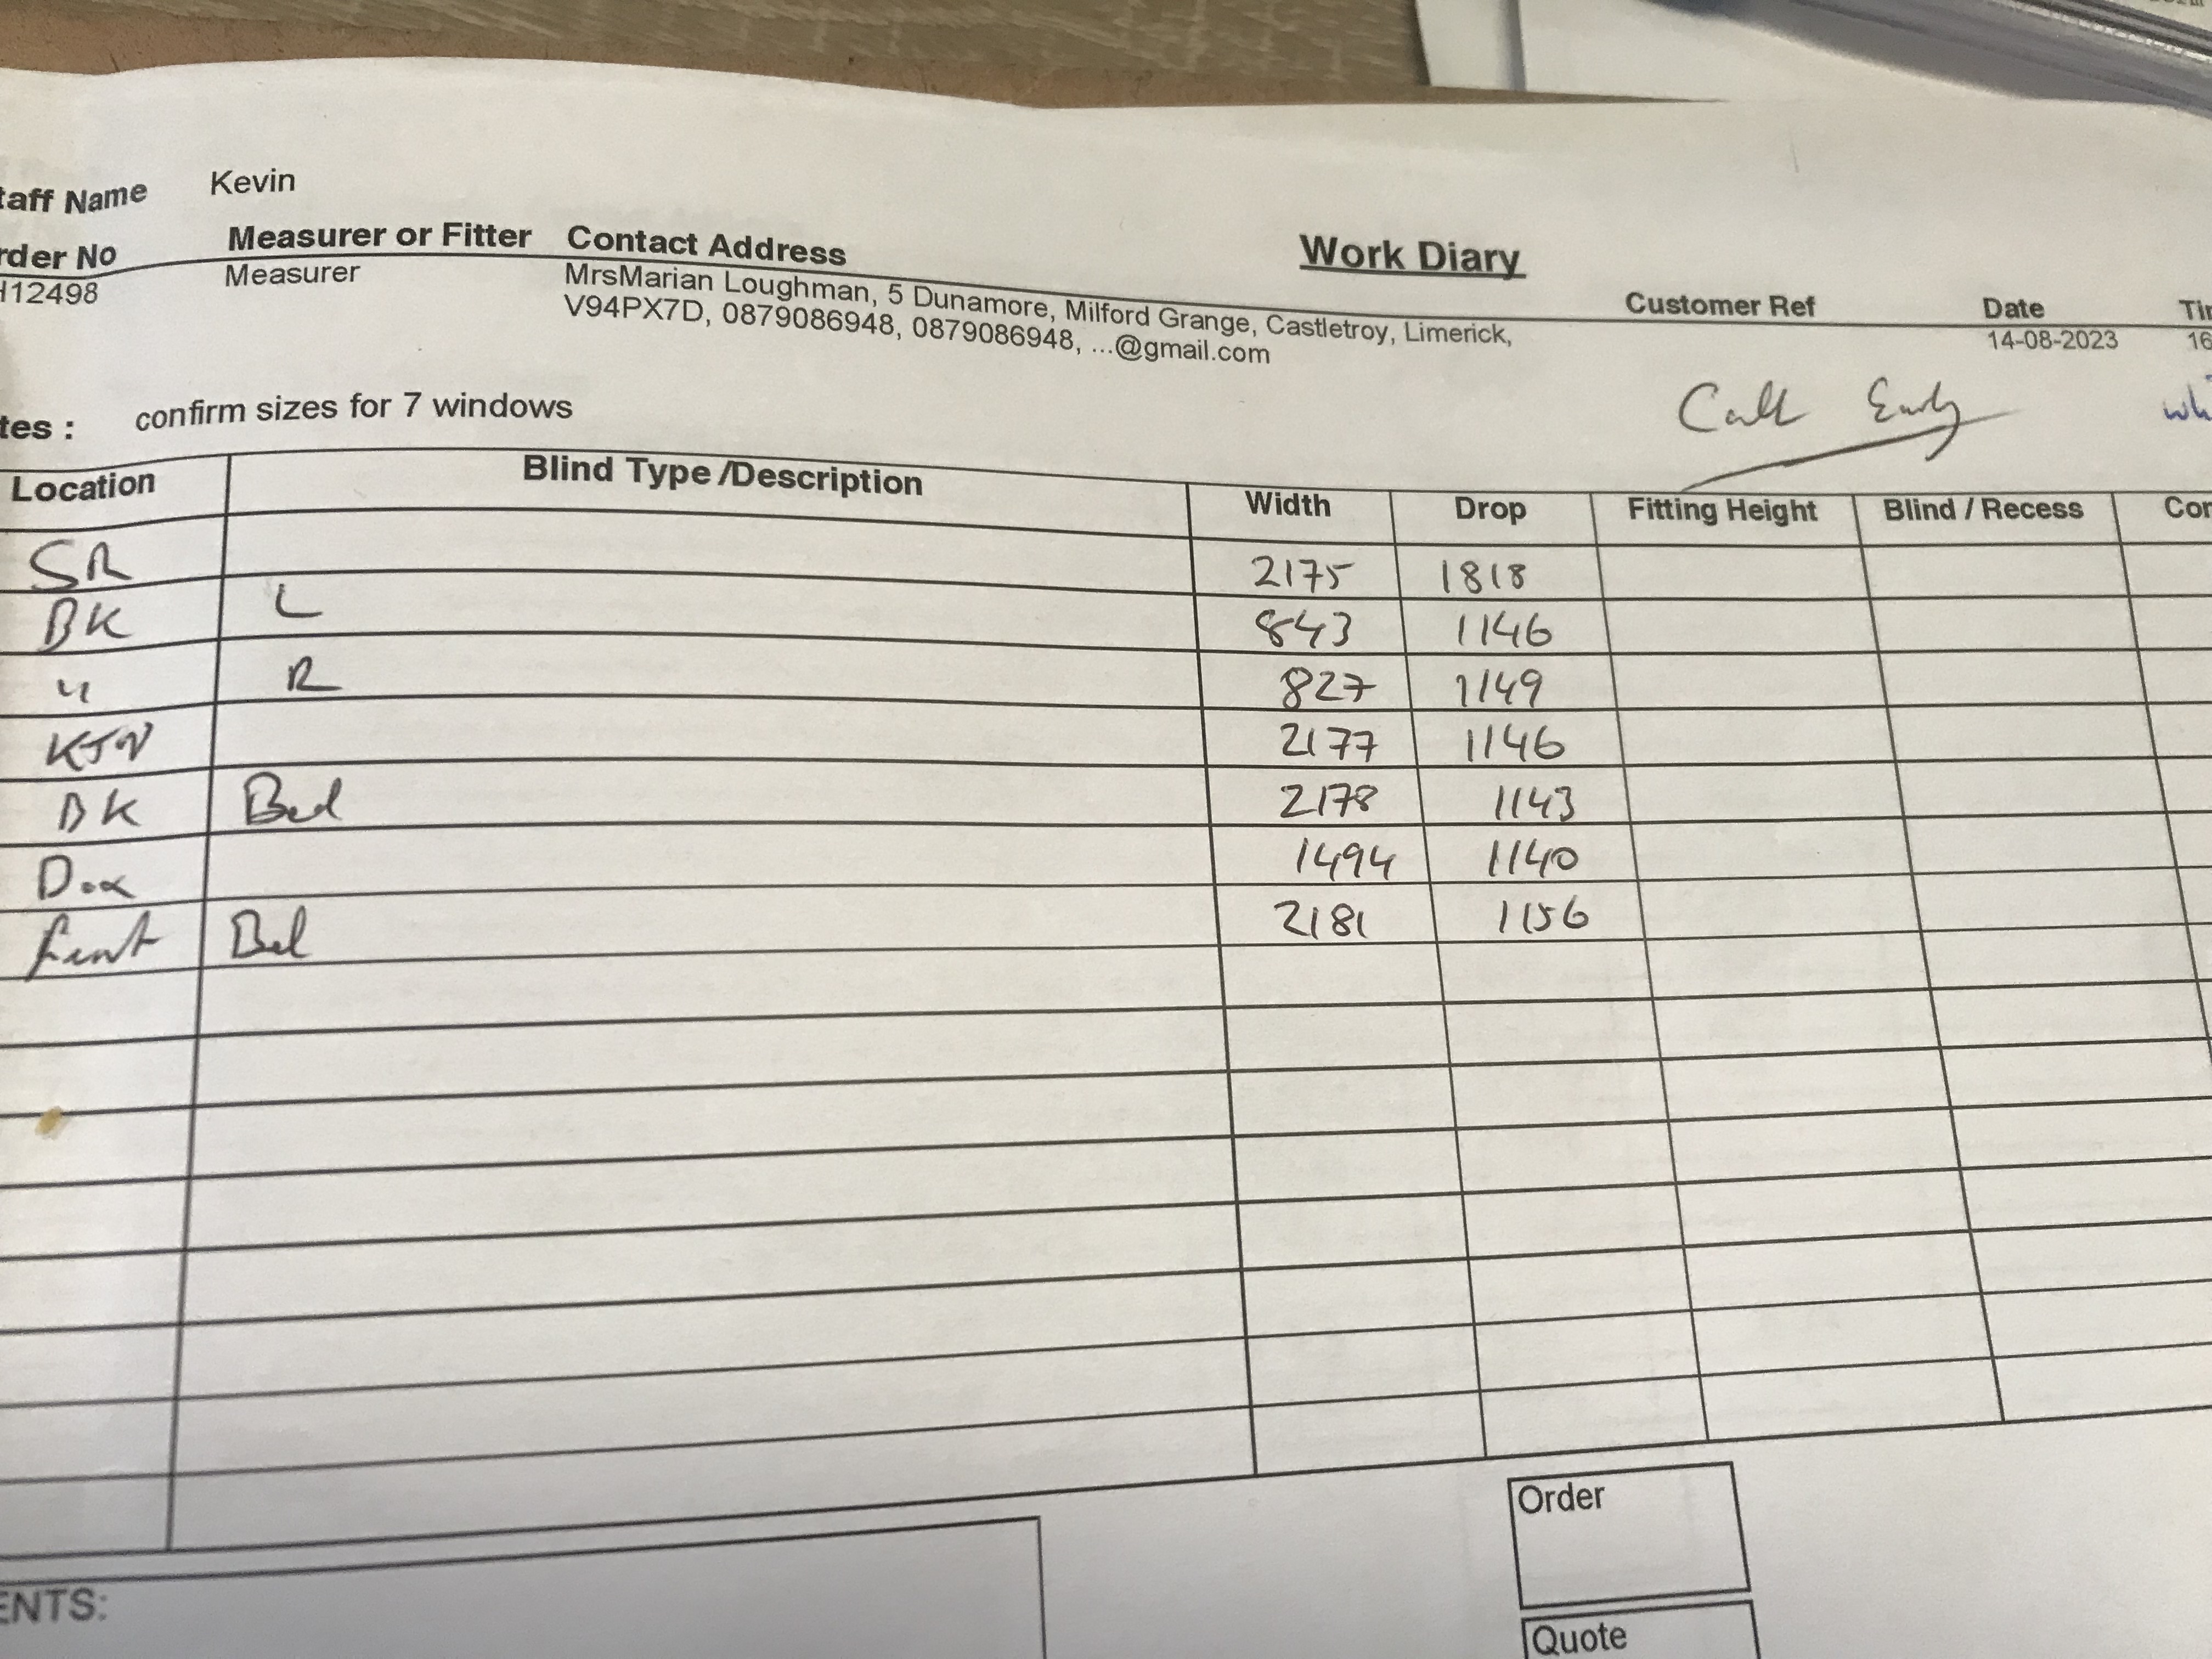 taff Name Kevin
rder No Measurer or Fitter Contact Address Work Diary Customer Ref Date Tir
H12498 Measurer MrsMarian Loughman, 5 Dunamore, Milford Grange, Castletroy, Limerick, 14-08-2023 16
V94PX7D, 0879086948, 0879086948, ...@gmail.com
Call Early
tes : confirm sizes for 7 windows
Location Blind Type /Description Width Drop Fitting Height Blind / Recess Cor
SR 2175 1818
BK L 843 1146
" R 827 1149
KTN 2177 1146
BK Bed 2178 1143
1494 1140
Front Bed 2181 1156
Order
ENTS:
Quote